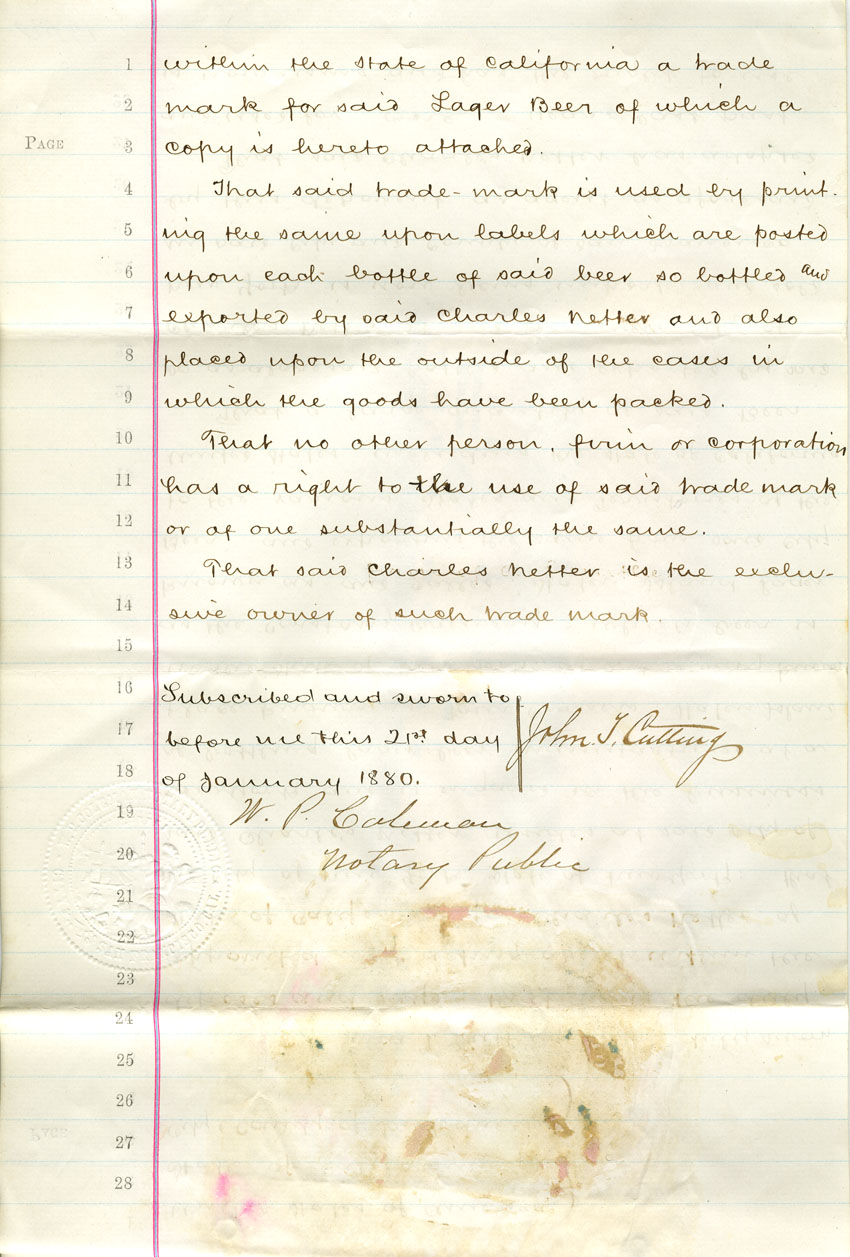 1 within the state of California a trade
2 mark for said Lager Beer of which a
PAGE 3 copy is hereto attached.
4 That said trade-mark is used by print-
5 ing the same upon labels which are posted
6 upon each bottle of said beer so bottled and
7 exported by said Charles Netter and also
8 placed upon the outside of the cases in
9 which the goods have been packed.
10 That no other person, firm or corporation
11 has a right to the use of said trade mark
12 or of one substantially the same.
13 That said Charles Netter is the exclu-
14 sive owner of such trade mark.
15
16 Subscribed and sworn to
17 before me this 21st day John T. Cutting
18 of January 1880.
19 W. P. Coleman
20 Notary Public
21
22
23
24
25
26
27
28